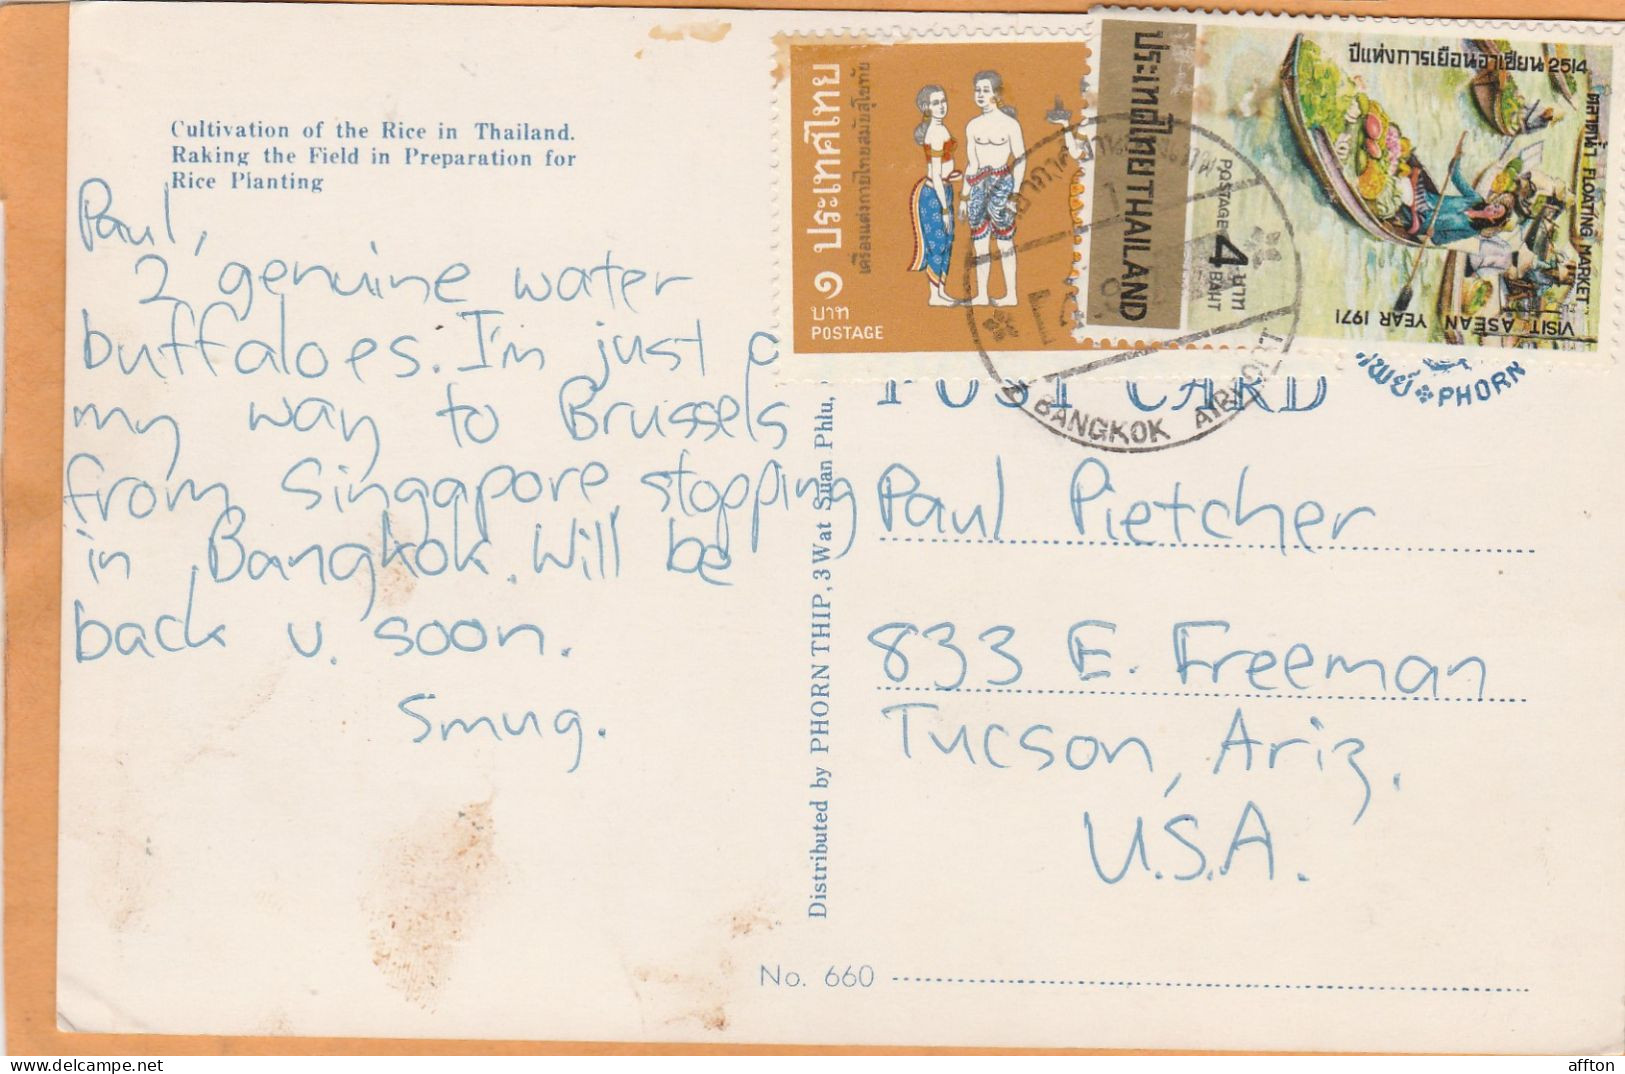 Cultivation of the Rice in Thailand.
Raking the Field in Preparation for
Rice Planting
Paul,
2 genuine water
buffaloes. I'm just o
my way to Brussels
from Singapore, stopping
in Bangkok. Will be
back u. soon.
Smug.
Distributed by PHORN THIP, 3 Wat Suan Phlu,
ประเทศไทย
เครื่องแต่งกายไทยสมัยสุโขทัย
๑
บาท
POSTAGE
ประเทศไทย THAILAND
ปีแห่งการเยือนอาเซียน 2514
ตลาดน้ำ FLOATING MARKET
VISIT ASEAN YEAR 1971
POSTAGE
4
บาท
BAHT
BANGKOK AIRPORT
POST CARD
PHORN
Paul Pietcher
833 E. Freeman
Tucson, Ariz.
U.S.A.
No. 660
affton